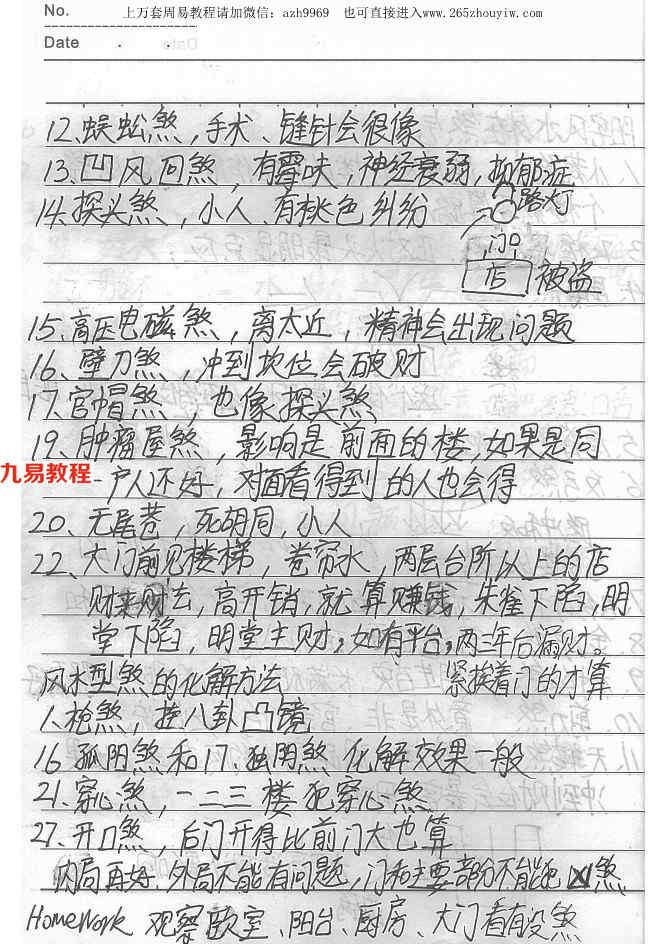 No.
上万套周易教程请加微信：azh9969 也可直接进入www.265zhouyiw.com
Date
12、蜈蚣煞，手术、缝针会很像
13、凹风回煞，有霉味，神经衰弱，抑郁症
14、探头煞，小人、有桃色纠纷
路灯
门口
店 被盗
15、高压电磁煞，离太近，精神会出现问题
16、壁刀煞，冲到坎位会破财
17、官帽煞，也像探头煞
19、肿瘤屋煞，影响是前面的楼，如果是同
九易教程
一户人还好，对面看得到的人也会得
20、无尾巷，死胡同，小人
22、大门前见楼梯，卷帘水，两层台阶以上的店
财来财去，高开销，就算赚钱，朱雀下陷，明
堂下陷，明堂主财，如有平台，两三年后漏财。
风水型煞的化解方法 紧挨着门的才算
1、枪煞，挂八卦凸镜
16、孤阴煞和17、独阴煞 化解效果一般
21、穿心煞，一二三楼犯穿心煞
27、开口煞，后门开得比前门大也算
内局再好，外局不能有问题，门和主要部分不能犯煞
Homework 观察卧室、阳台、厨房、大门看有没煞